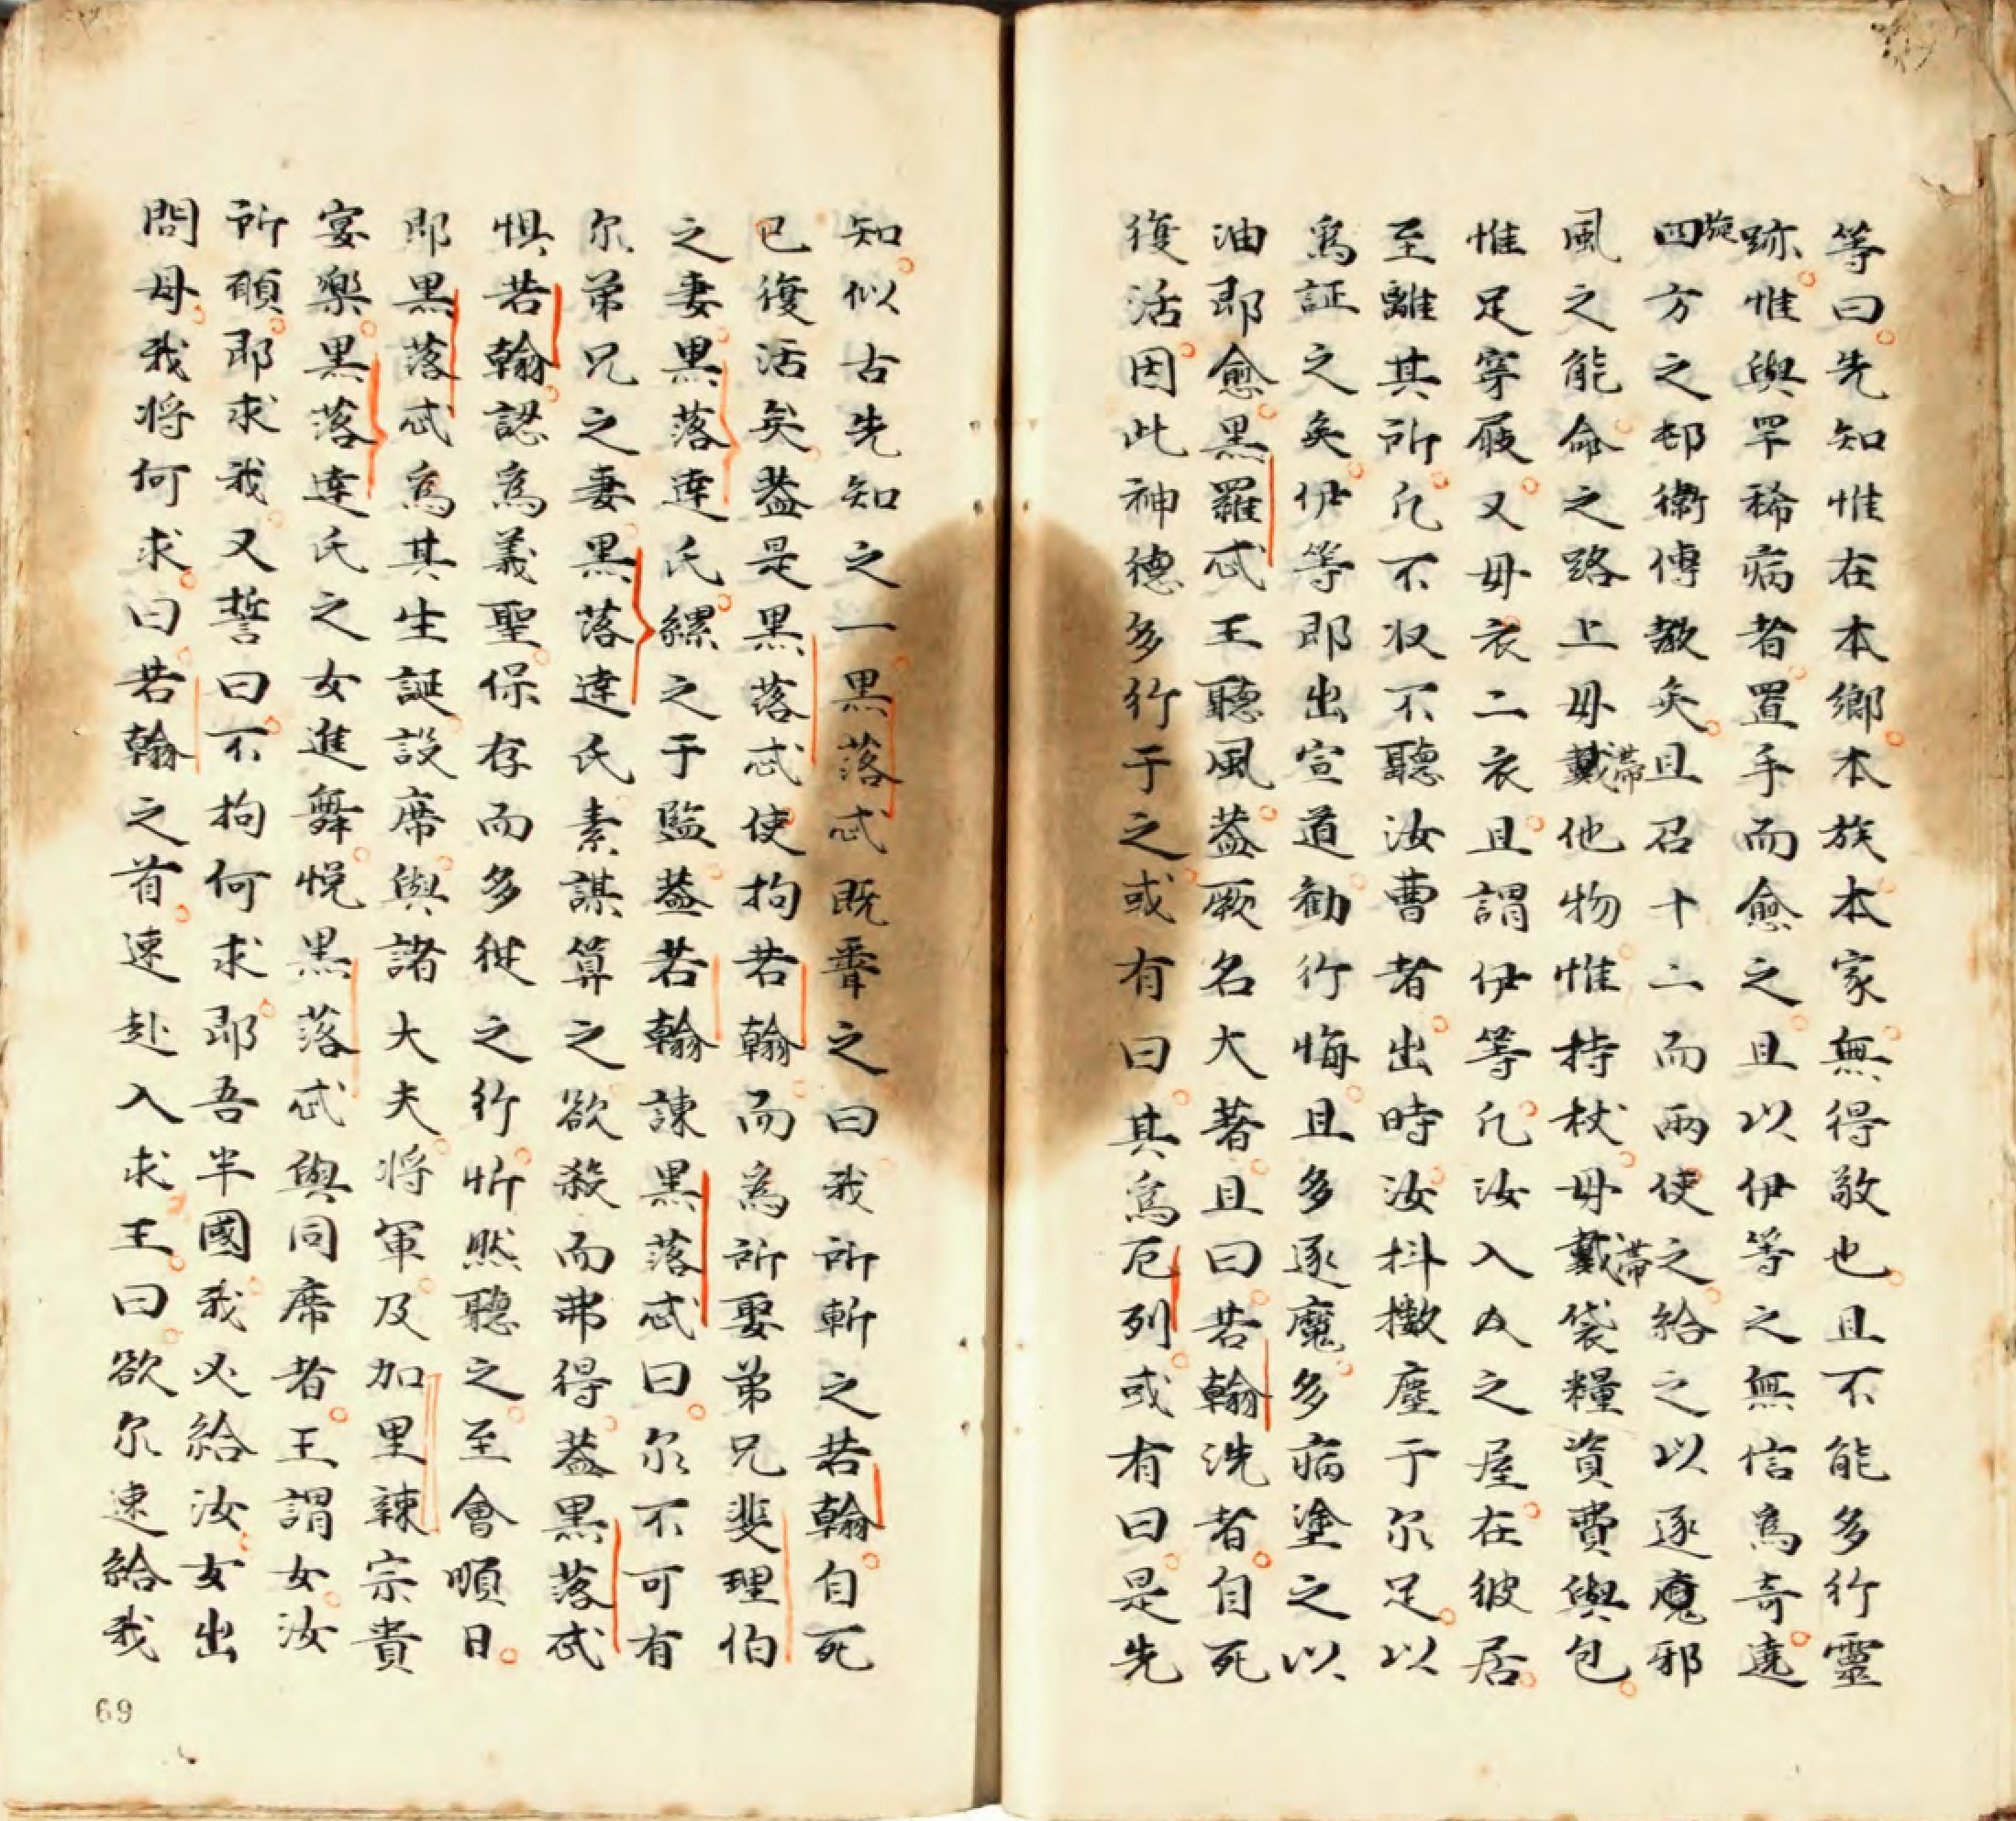 等曰先知惟在本鄉本族本家無得敬也且不能多行靈
跡惟與罕稀病者置手而愈之且以伊等之無信為奇遶
旋四方之邨衢傳教矣且召十二而兩使之給之以逐魔邪
風之能命之路上毋戴滯他物惟持杖毋戴滯袋糧資費與包
惟足穿屐又毋衣二衣且謂伊等凡汝入人之屋在彼居
至離其所凡不収不聽汝曹者出時汝抖擻塵于尔足以
為証之矣伊等即出宣道勸行悔且多逐魔多病塗之以
油即愈黑羅忒王聽風蓋厥名大著且曰若翰洗者自死
復活因此神德多行于之或有曰其為厄列或有曰是先
知似古先知之一黑落忒既䎽之曰我所斬之若翰自死
已復活矣蓋是黑落忒使拘若翰而為所娶弟兄斐理伯
之妻黑落達氏縲之于監蓋若翰諫黑落忒曰尔不可有
尔弟兄之妻黑落達氏素謀算之欲殺而弗得蓋黑落忒
惧若翰認為義聖保存而多從之行忻然聽之至會順日
即黑落忒為其生誕設席與諸大夫将軍及加里辣宗貴
宴樂黑落達氏之女進舞悅黑落忒與同席者王謂女汝
所願即求我又誓曰不拘何求即吾半國我必給汝女出
問母我将何求曰若翰之首速赴入求王曰欲尔速給我
69